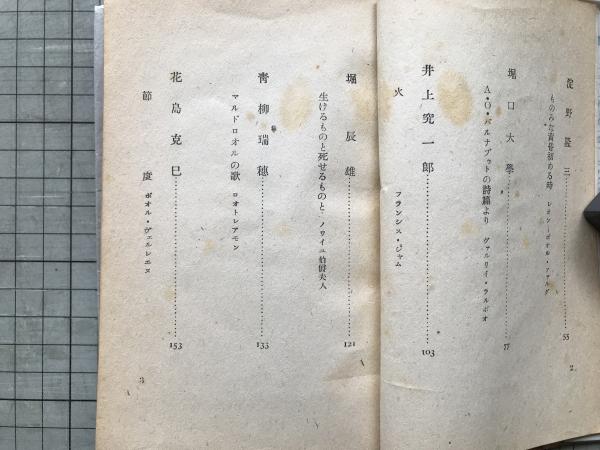 淀野隆三……………55
ものみな青春初める時　レオン・ポオル・ファルグ
堀口大學……………77
A・O・バルナブゥトの詩篇より　ヴァルリイ・ラルボオ
井上究一郎……………103
火　フランシス・ジャム
2
堀辰雄……………121
生けるものと死せるものと　ノワイユ伯爵夫人
靑柳瑞穗……………133
マルドロオルの歌　ロオトレアモン
花島克巳……………153
節度　ポオル・ヴェルレエヌ
3